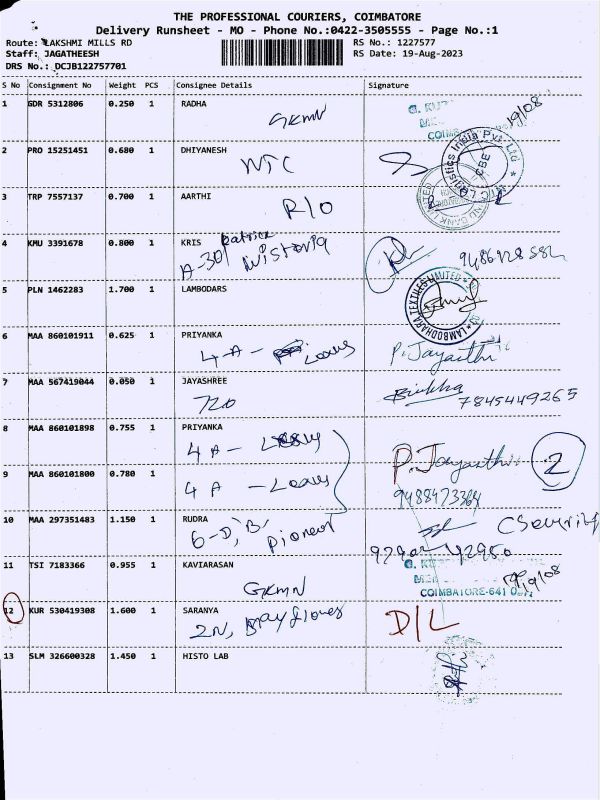 THE PROFESSIONAL COURIERS, COIMBATORE
Delivery Runsheet - MO - Phone No.:0422-3505555 - Page No.:1
Route: LAKSHMI MILLS RD
Staff: JAGATHEESH
DRS No.: DCJB122757701
RS No.: 1227577
RS Date: 19-Aug-2023
S No Consignment No Weight PCS Consignee Details Signature
1 GDR 5312806 0.250 1 RADHA
GKMN
19/08
2 PRO 15251451 0.680 1 DHIYANESH
NTC
3 TRP 7557137 0.700 1 AARTHI
R/O
4 KMU 3391678 0.800 1 KRIS
A-301
5 PLN 1462283 1.700 1 LAMBODARS
LAMBODHARA TEXTILES LIMITED
6 MAA 860101911 0.625 1 PRIYANKA
4 A -
P. Jayanthi
7 MAA 567419044 0.050 1 JAYASHREE
7845449265
8 MAA 860101898 0.755 1 PRIYANKA
4 A -
P. Jayanthi 2
9 MAA 860101800 0.780 1
4 A -
10 MAA 297351483 1.150 1 RUDRA
6-D, 'B', pioneer
11 TSI 7183366 0.955 1 KAVIARASAN
GKMN
19/08
COIMBATORE-641
12 KUR 530419308 1.600 1 SARANYA
2N,
D/L
13 SLM 326600328 1.450 1 HISTO LAB